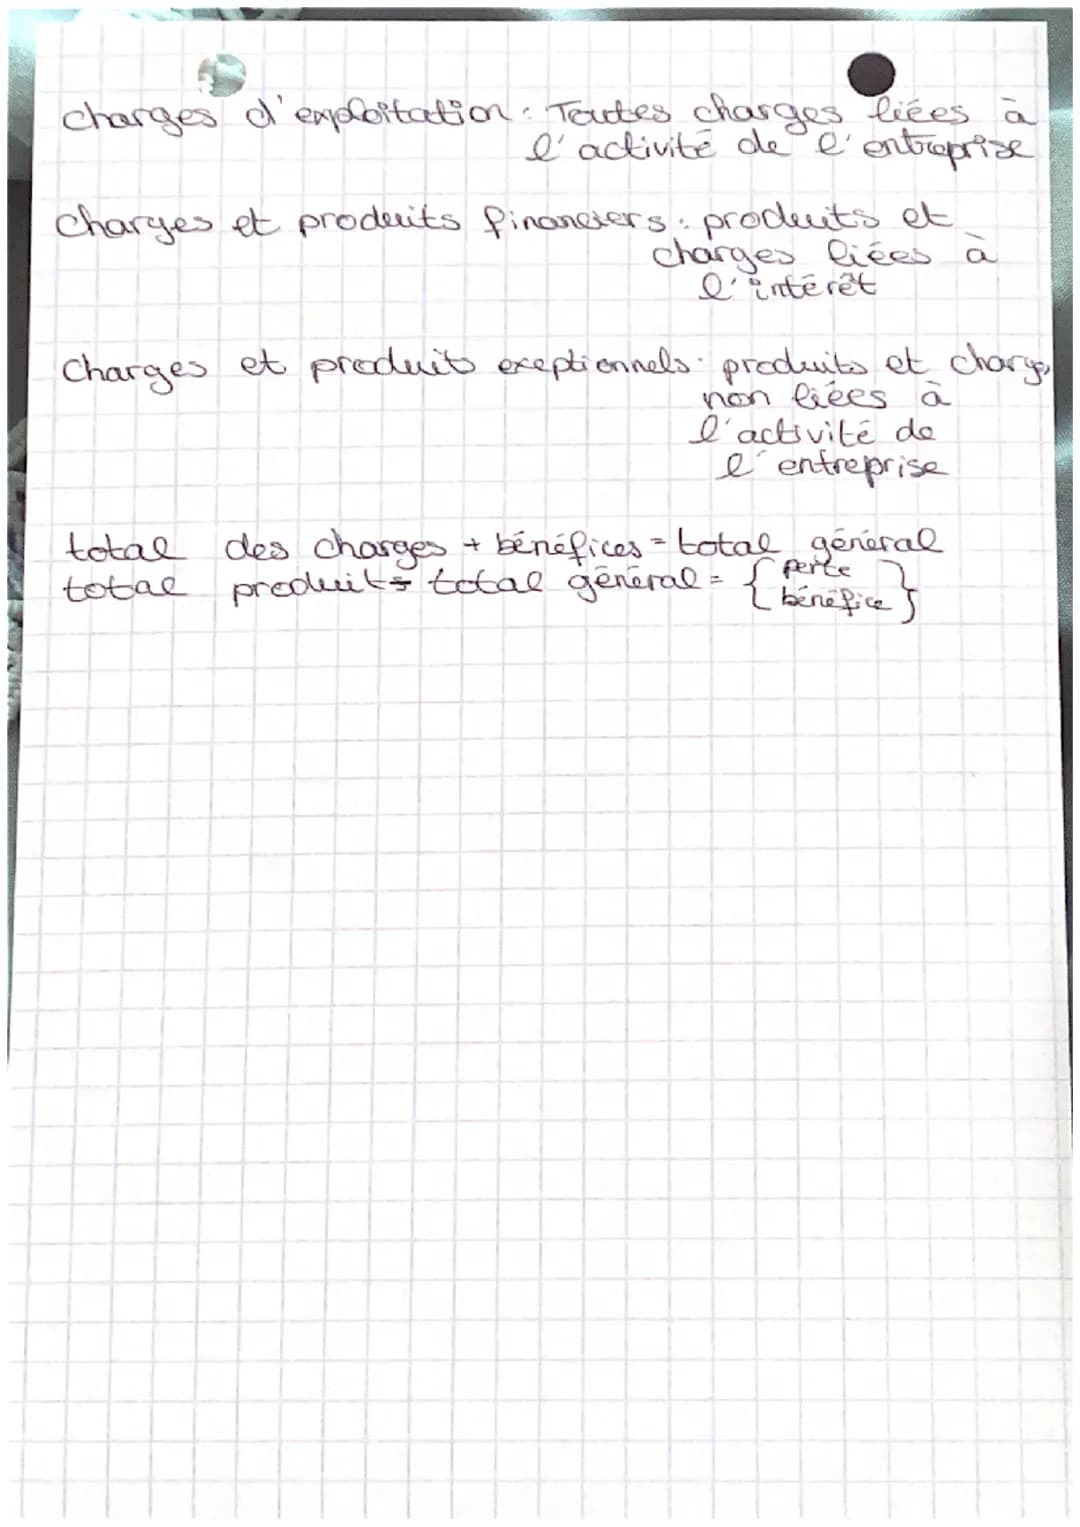 charges d'exploitation : Toutes charges liées à
l'activité de l'entreprise
Charges et produits financiers : produits et
charges liées à
l'intérêt
Charges et produits exeptionnels : produits et charges
non liées à
l'activité de
l'entreprise
total des charges + bénéfices = total général
total produit = total général = { perte
bénéfice }